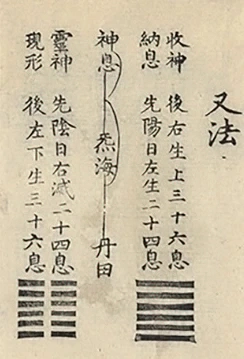 又法
收神 後右生上三十六息
納息 先陽日左生二十四息
神息 炁海 丹田
靈神 先陰日右滅二十四息
現形 後左下生三十六息